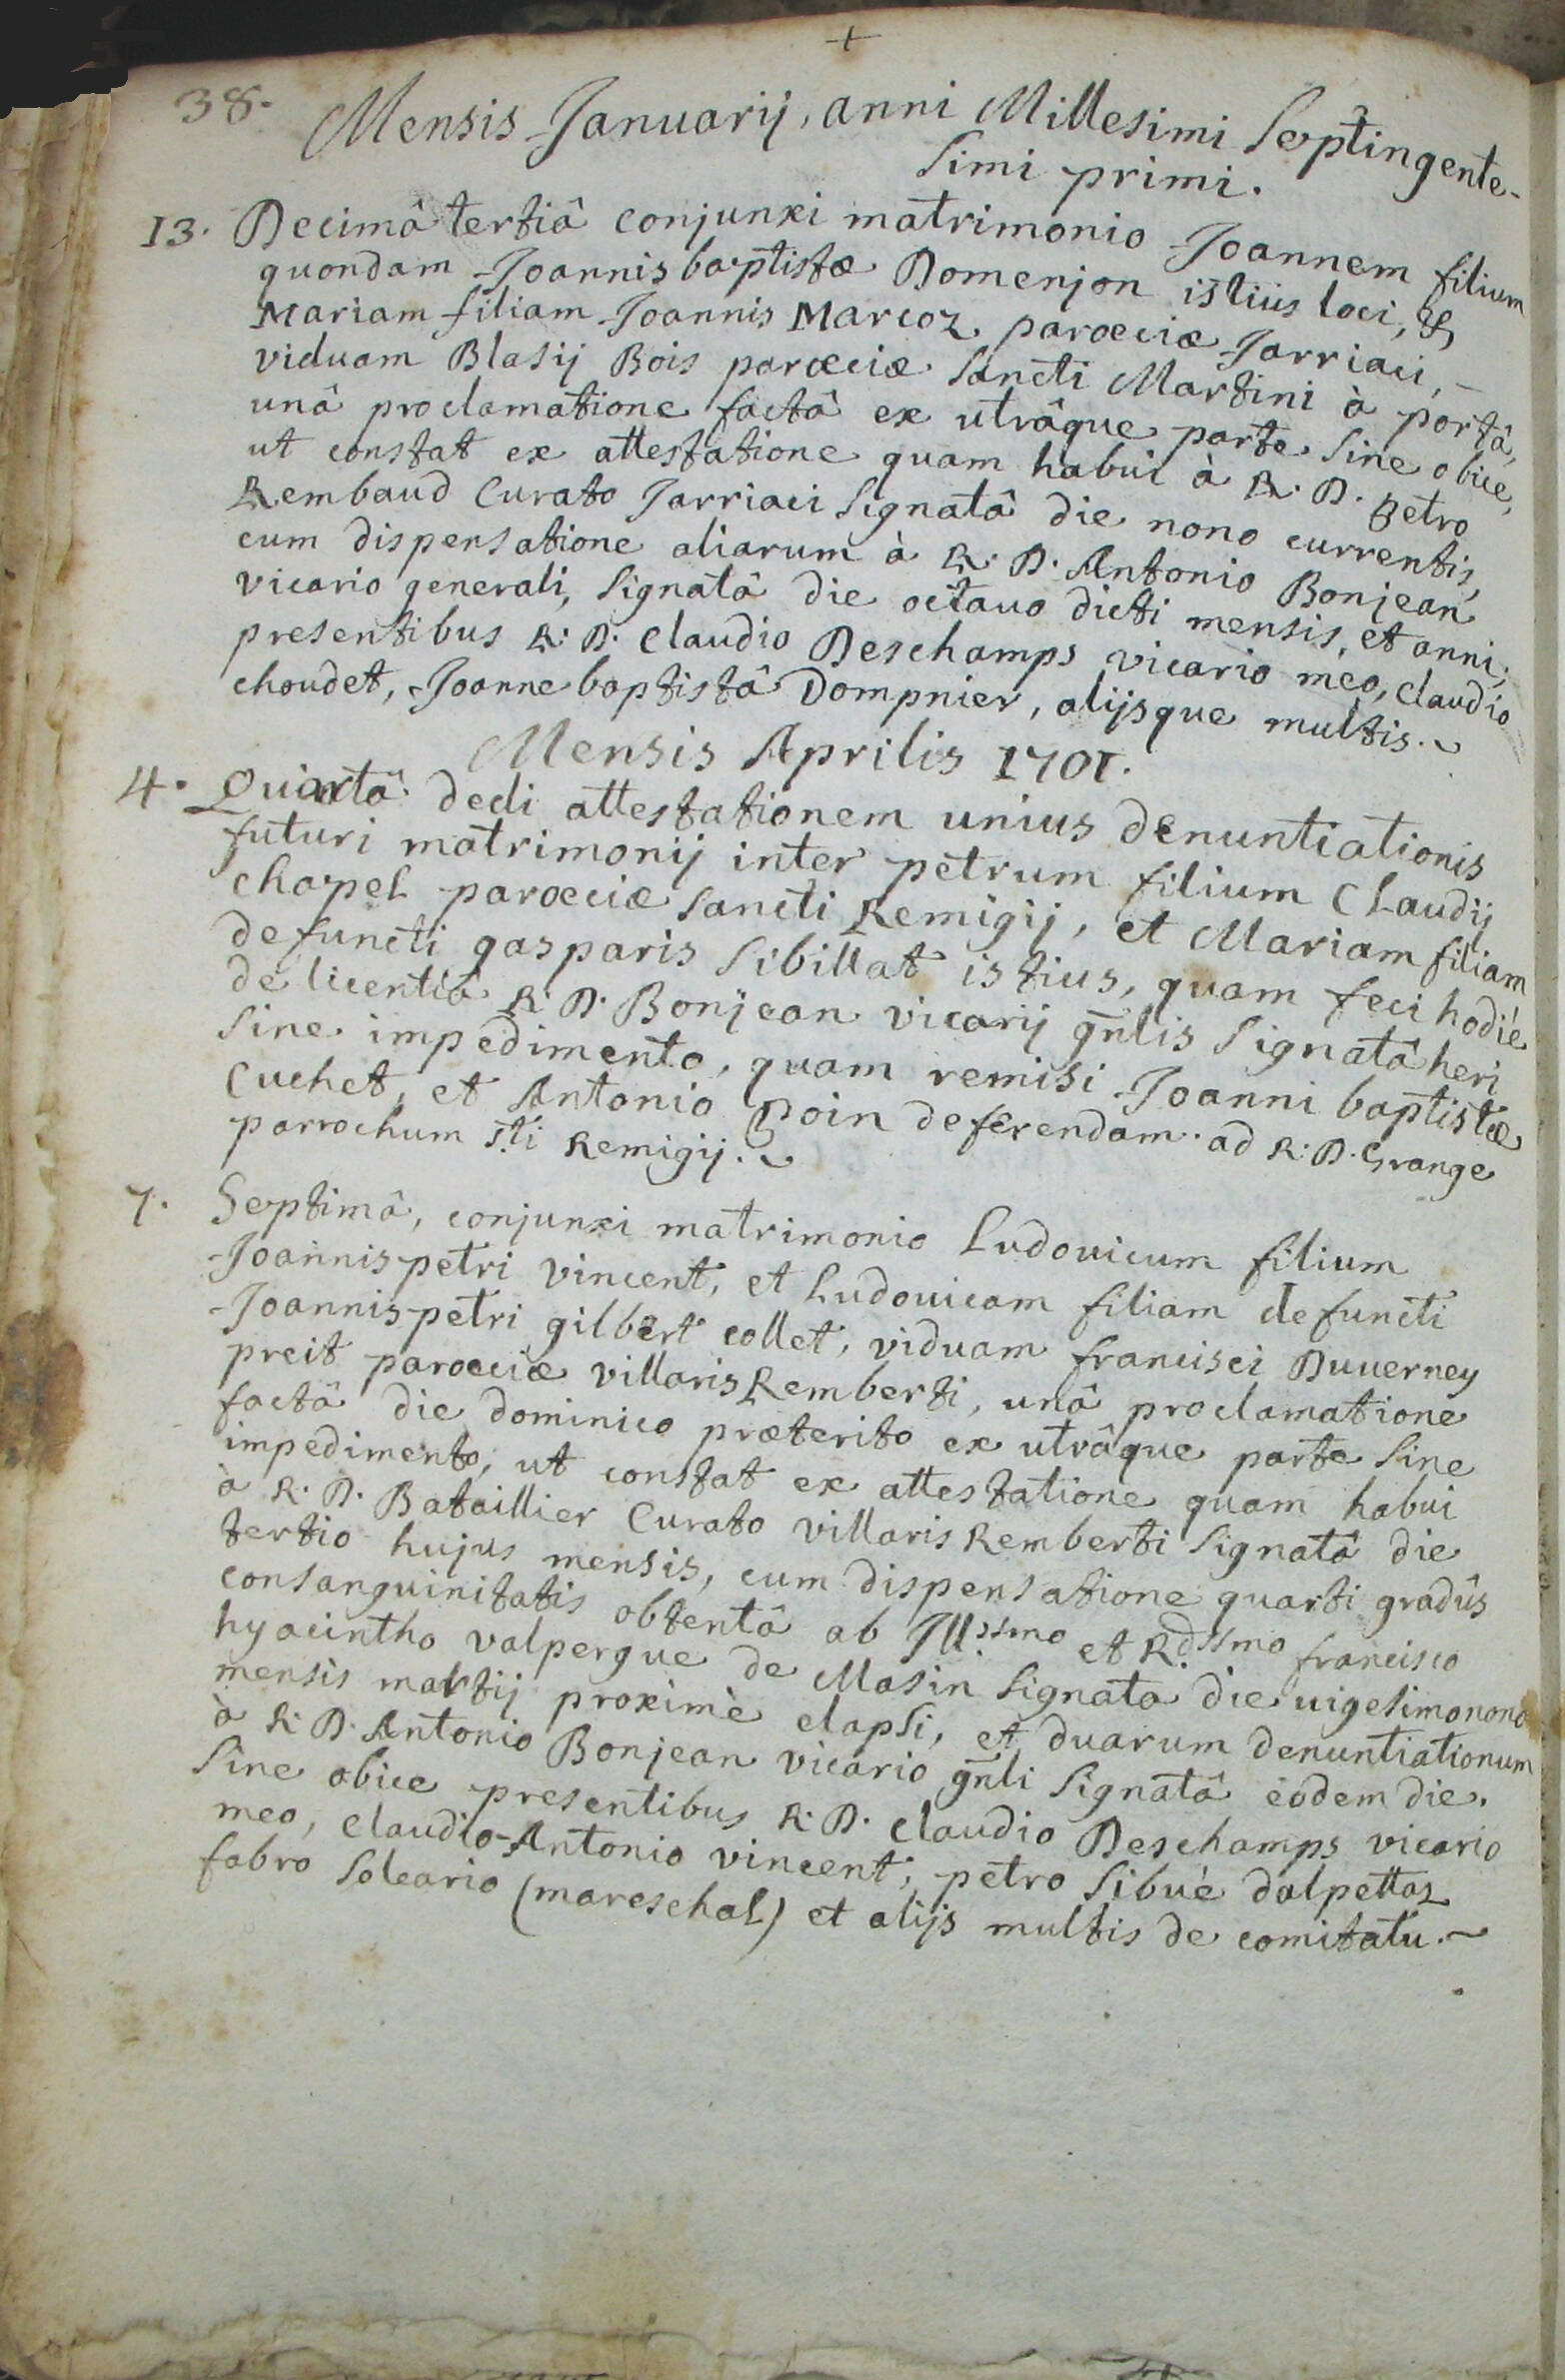 +
38.
Mensis Januarij, anni Millesimi Septingente-
simi primi.
13. Decimâ tertiâ conjunxi matrimonio Joannem filium
quondam Joannis baptistæ Domenjon istius loci, &
Mariam filiam Joannis Marcoz parœciæ Jarriaci, -
viduam Blasij Bois parœciæ Sancti Martini à portâ,
unâ proclamatione factâ ex utrâque parte sine obice,
ut constat ex attestatione quam habui à R. D. petro
Rembaud Curato Jarriaci signatâ die nono currentis,
cum dispensatione aliarum à R. D. Antonio Bonjean
vicario generali, signatâ die octavo dicti mensis, et anni;
presentibus R. D. Claudio Deschamps vicario meo, claudio
choudet, Joanne baptistâ Dompnier, alijsque multis. ~
Mensis Aprilis 1701.
4. Quartâ dedi attestationem unius denuntiationis
futuri matrimonij inter petrum filium Claudij
chapel parœciæ Sancti Remigij, et Mariam filiam
defuncti gasparis Sibillat istius, quam feci hodie
de licentiâ R. D. Bonjean vicarij gnlis signatâ heri
sine impedimento, quam remisi Joanni baptistæ
Cuchet, et Antonio poin deferendam ad R. D. Grange
parrochum Sti Remigij. ~
7. Septimâ, conjunxi matrimonio Ludovicum filium
Joannis petri vincent, et Ludovicam filiam defuncti
Joannis petri gilbert collet, viduam francisci Duverney
preit parœciæ villaris Remberti, unâ proclamatione
factâ die dominico præterito ex utrâque parte sine
impedimento, ut constat ex attestatione quam habui
à R. D. Bataillier Curato villaris Remberti signatâ die
tertio hujus mensis, cum dispensatione quarti gradûs
consanguinitatis obtentâ ab Illssmo et Rdssmo francisco
hyacintho valpergue de Masin signata die vigesimonono
mensis martij proximè elapsi, et duarum denuntiationum
à R. D. Antonio Bonjean vicario gnli signatâ eodem die.
sine obice presentibus R. D. Claudio Deschamps vicario
meo, claudio-Antonio vincent, petro Sibuè dalpettaz
fabro soleario (mareschal) et alijs multis de comitatu. ~